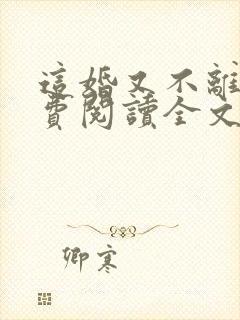 這婚又不離
費閱讀全文
卿寒